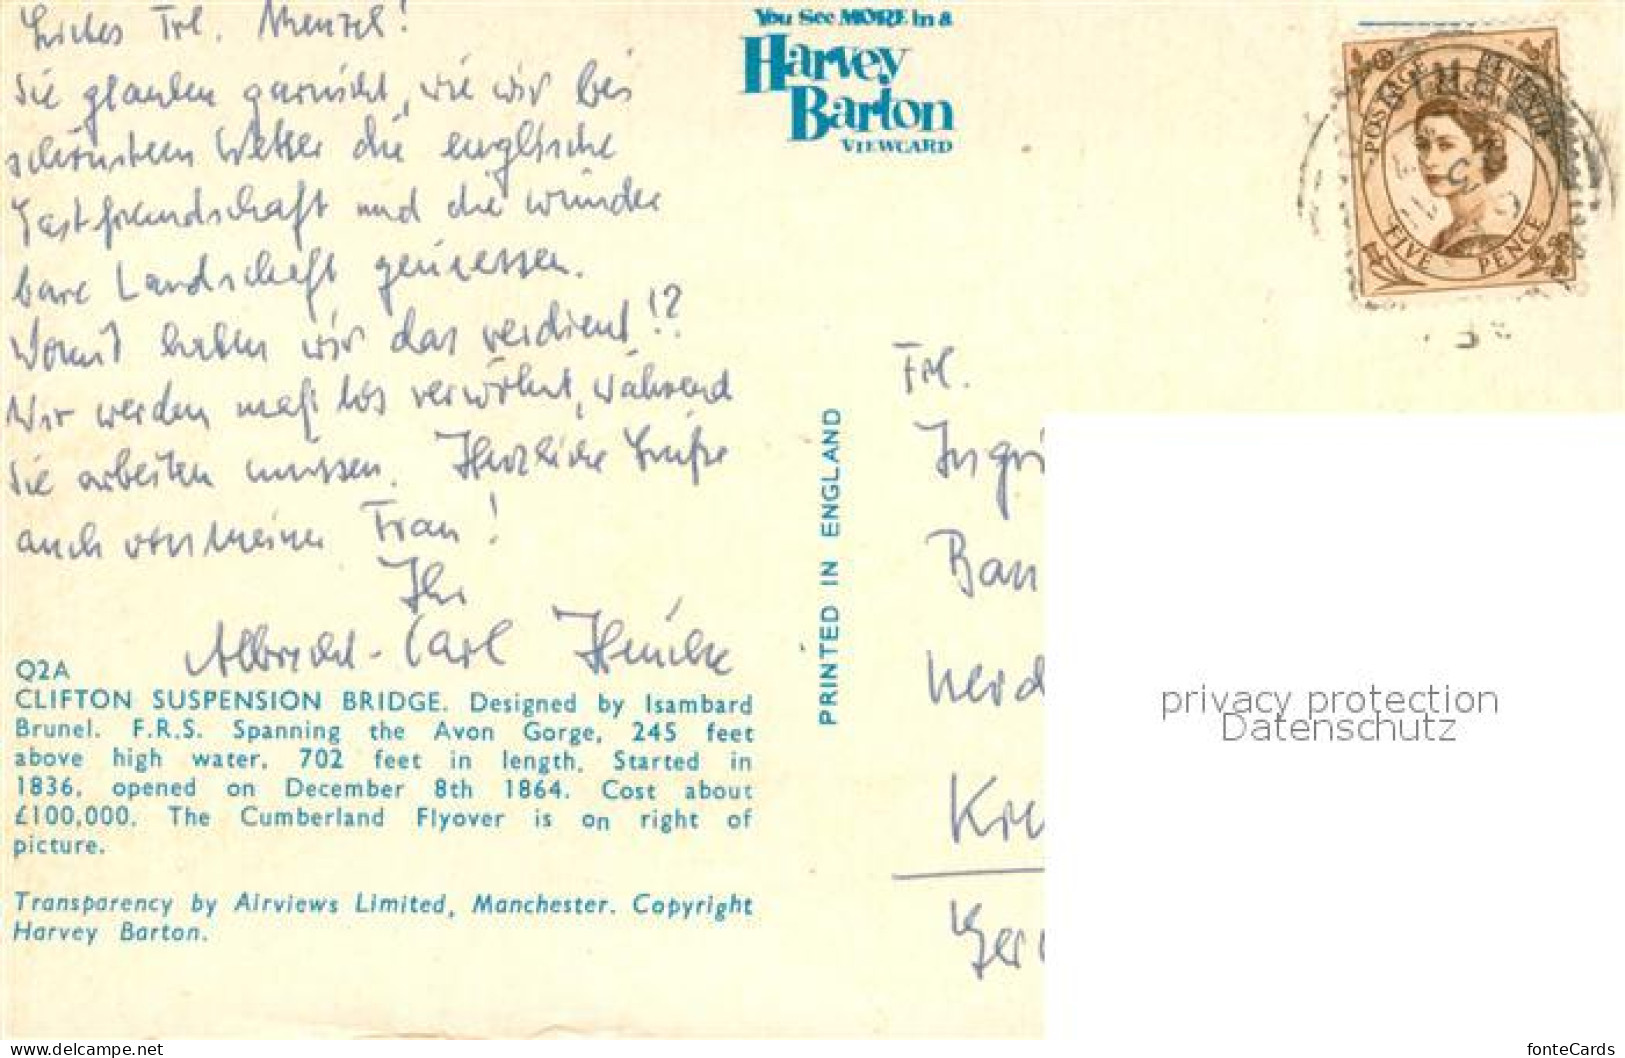 Liebes Frl. Menzel!
Sie glauben garnicht, wie wir bei
schönstem Wetter die englische
Gastfreundschaft und die wunder
bare Landschaft geniessen.
Womit haben wir das verdient!?
Wir werden maßlos verwöhnt, während
Sie arbeiten müssen. Herzliche Grüße
auch von meiner Frau!
Ihr
Albrecht-Carl
Q2A
CLIFTON SUSPENSION BRIDGE. Designed by Isambard
Brunel. F.R.S. Spanning the Avon Gorge, 245 feet
above high water, 702 feet in length. Started in
1836, opened on December 8th 1864. Cost about
£100,000. The Cumberland Flyover is on right of
picture.
Transparency by Airviews Limited, Manchester. Copyright
Harvey Barton.
You See MORE in a
Harvey
Barton
VIEWCARD
PRINTED IN ENGLAND
POSTAGE REVENUE
FIVE PENCE
Frl.
privacy protection
Datenschutz
www.delcampe.net
fonteCards